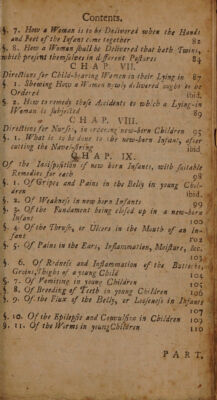 Contents.
§. 7. How a Woman is to be Delivered when the Hands
and Feet of the Infant come together 82
§. 8. How a Woman shall be Delivered that hath Twins,
which present themselves in different Postures 84
CHAP. VII.
Directions for Child-bearing Women in their Lying in 87
§. 1. Shewing How a Woman newly delivered ought to be
Ordered ibid.
§. 2. How to remedy those Accidents to which a Lying-in
Woman is subjected 89
CHAP. VIII.
Directions for Nurses, in ordering new-born Children 95
§. 1. What is to be done to the new-born Infant, after
cutting the Navel-string ibid.
CHAP. IX.
Of the Indisposition of new born Infants, with suitable
Remedies for each 98
§. 1. Of Gripes and Pains in the Belly in young Chil-
dren ibid.
§. 2. Of Weakness in new born Infants 99
§. 3. Of the Fundament being closed up in a new-born
Infant 100
§. 4. Of the Thrush, or Ulcers in the Mouth of an In-
fant 102
§. 5. Of Pains in the Ears, Inflammation, Moisture, &c.
103
§. 6. Of Redness and Inflammation of the Buttocks,
Groins, Thighs of a young Child 104
§. 7. Of Vomiting in young Children 105
§. 8. Of Breeding of Teeth in young Children 106
§. 9. Of the Flux of the Belly, or Looseness in Infants
107
§. 10. Of the Epilepsie and Convulsion in Children 109
§. 11. Of the Worms in young Children 110
PART.